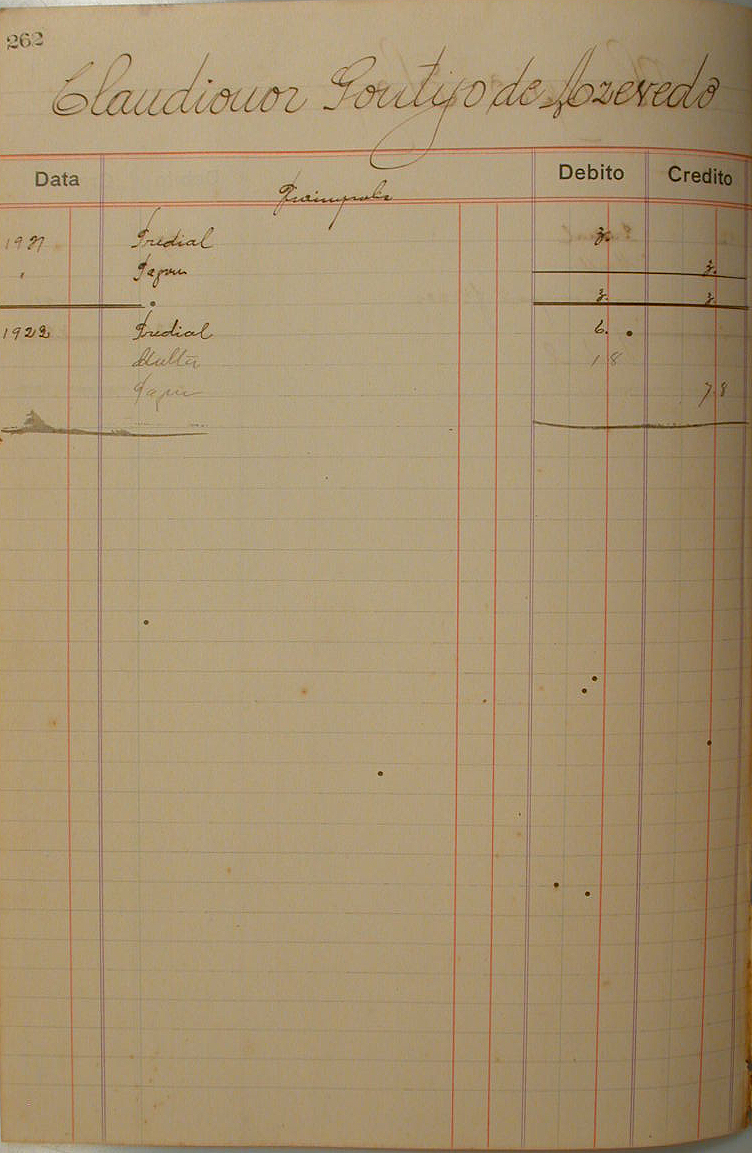 262
Claudionor Gontijo de Azevedo
Data Debito Credito
Predial 3.
" Pagou 3.
3. 3.
1922 Predial 6.
Multa 1 8
Pagou 7 8